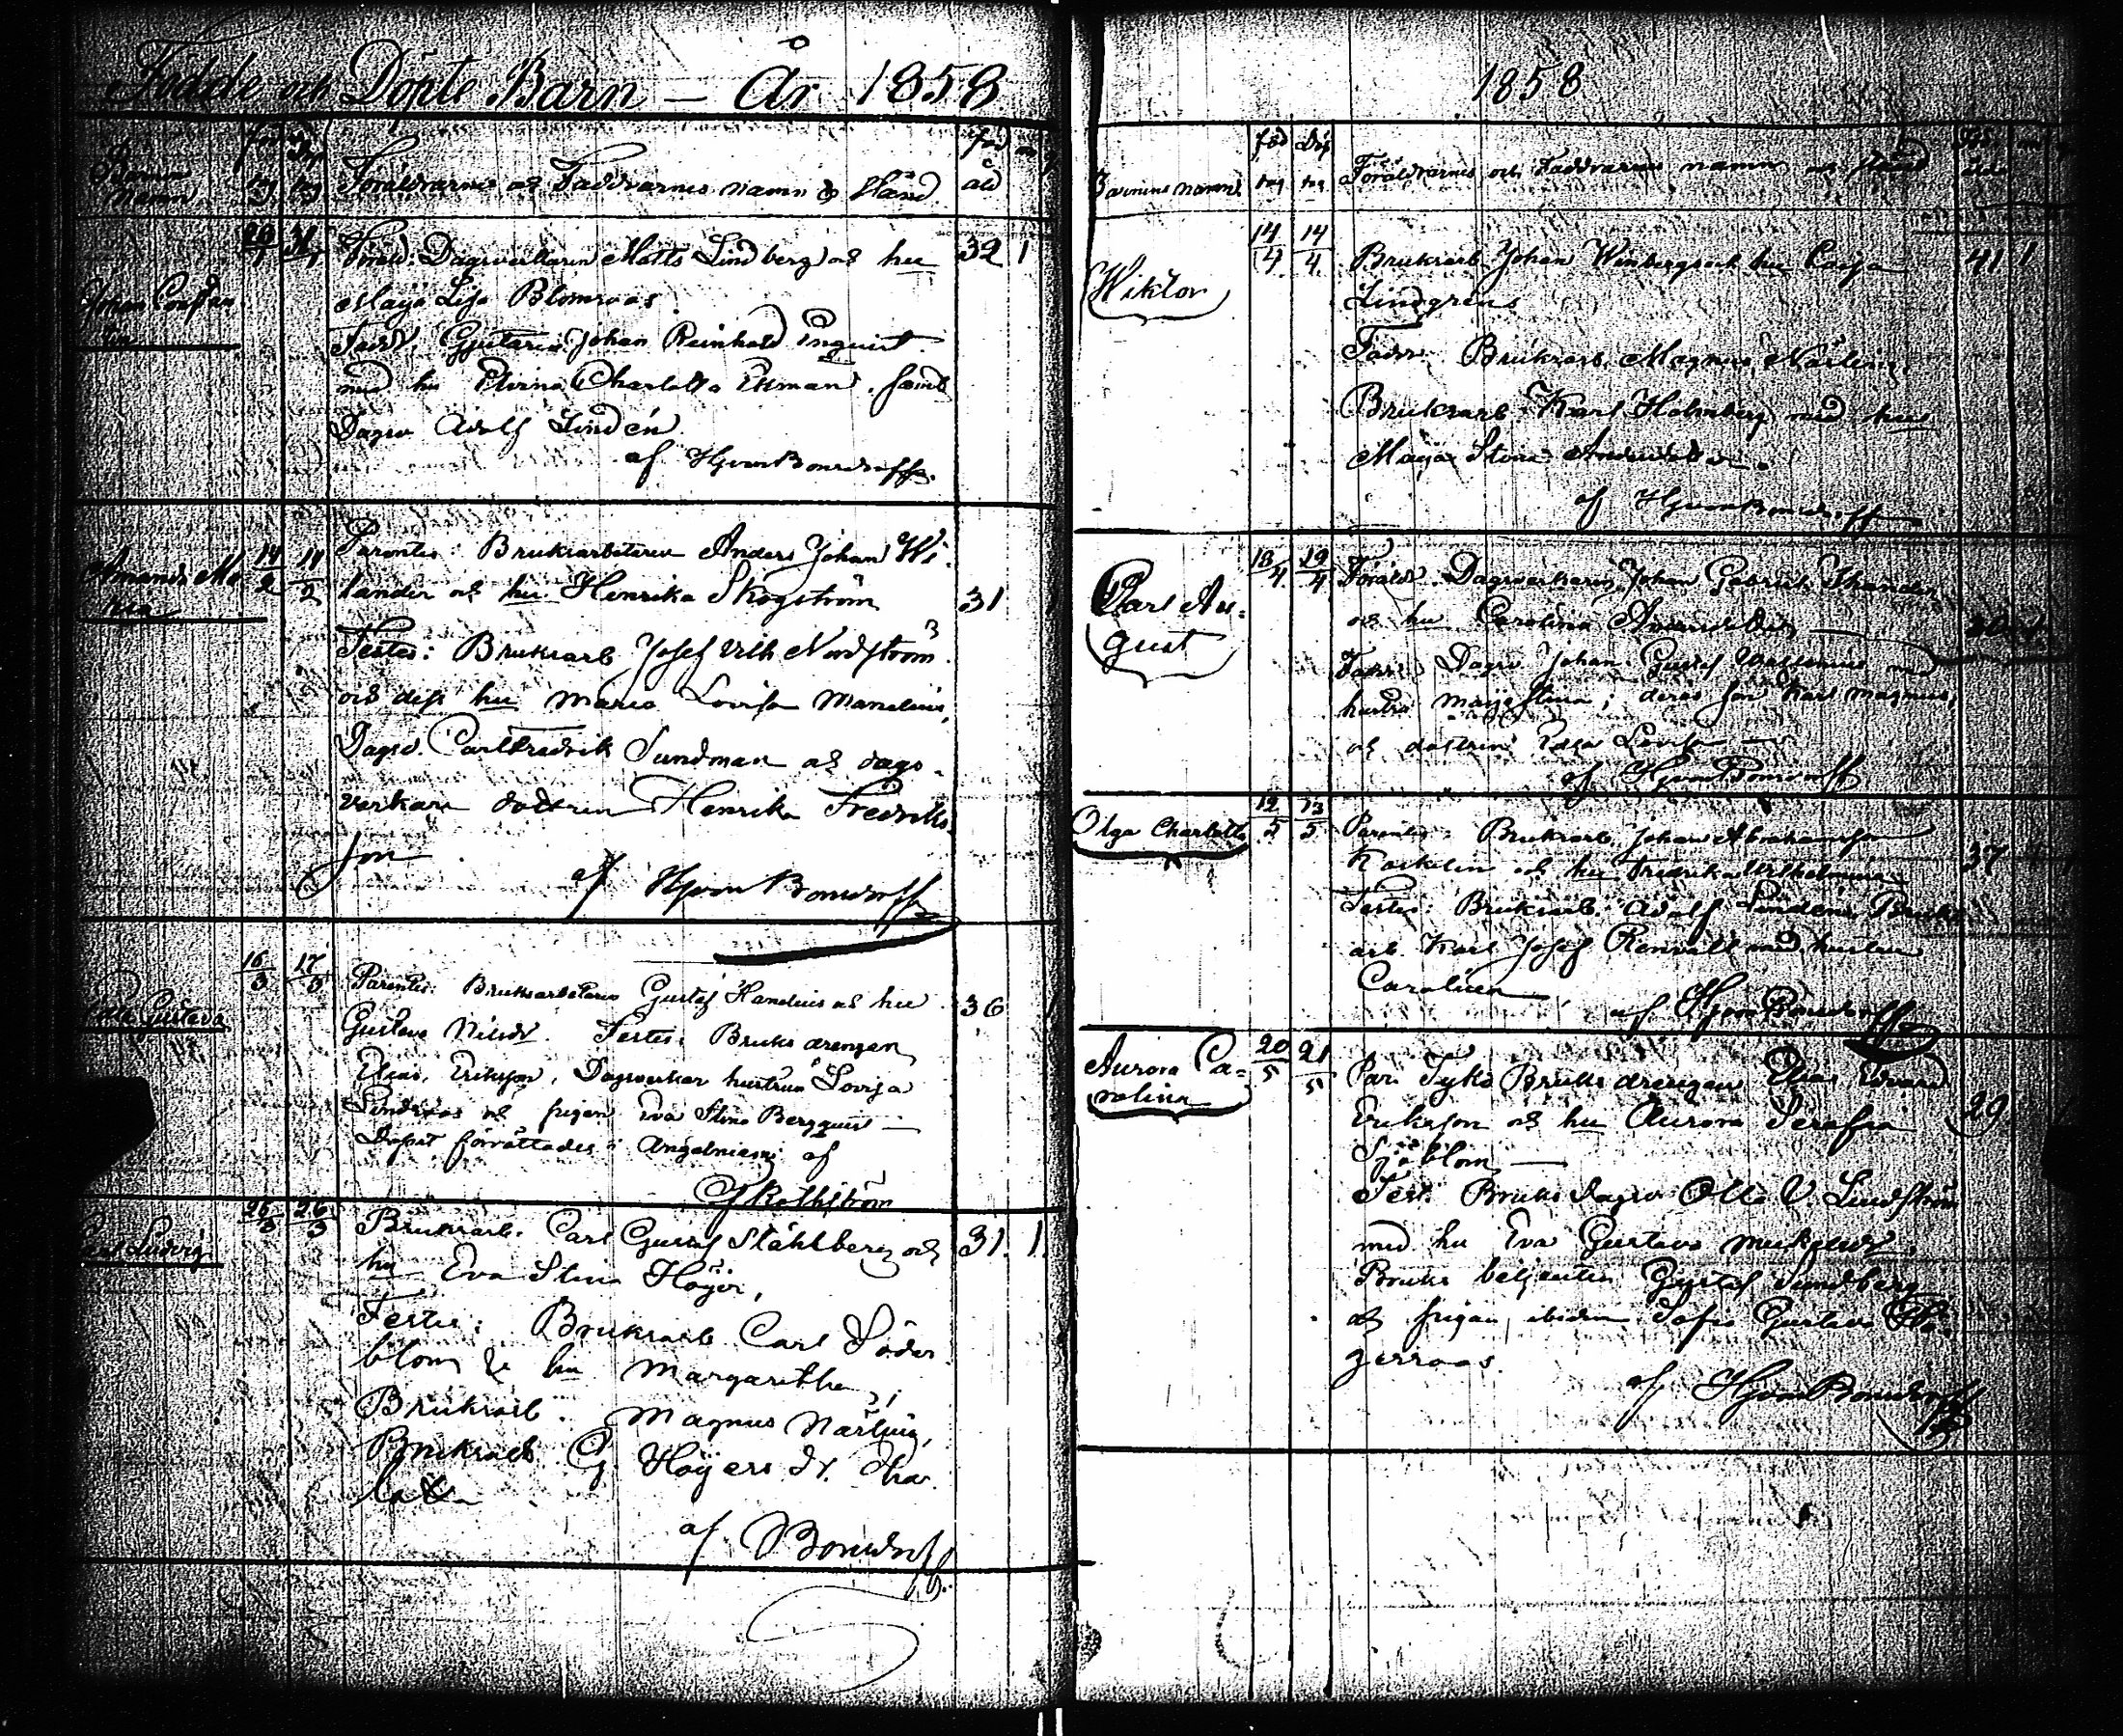 Födde och Döpte Barn – År 1858
Barnens
Namn
föd
dag
Döp
dag
Föräldrarnes och Faddrarnes namn & stånd
föd
åld
Johan Constan
tin
29/1 31/1
Föräld: Dagsverkaren Matts Lindberg och hu
32 1
Maja Lisa Blomroos
Fadd. Gjutaren Johan Reinhold Enquist
med hu Elvina Charlotta Ekman. samt
Dagsv Adolf Lindén
af HJvonBonsdorff.
Amanda Ma
ria
14/2 14/2
Parentes: Bruksarbetaren Anders Johan Wi
lander och hu Henrika Skogström
31
Testes: Bruksarb Josef Vilh Nordström
och dess hu Maria Lovisa Mandelin,
Dagsv. Carl Fredrik Sundman och dags-
verkare dottren Henrika Fredriks
son
af HJvon Bonsdorff
Gustava
16/3 17/3
Parentes: Bruksarbetaren Gustaf Handlin och hu
36
Gustava Nilsdr. Testes: Bruks drengen
Elias Eriksson, Dagsverkar hustrun Lovisa
Lindroos och pigan Eva Stina Bergquist —
Dopet förrättades i Angelniemi af
Rothström
Carl Ludvig
26/3 26/3
Bruksarb. Carl Gustaf Ståhlberg och
31. 1.
hu Eva Stina Höijer,
Testes: Bruksarb Carl Söder
blom & hu Margaretha,
Bruksarb. Magnus Närling,
Bruksarb G Höijers dr. Char
lotta
af Bonsdorff.
1858
Barnens namn
föd
dag
Döp
dag
Föräldrarnes och Faddrarnes namn och stånd
föd
ålder
Wiktor
14/4 14/4
Bruksarb Johan Winberg och hu Caisa
41 1
Lindgrens
Faddr. Bruksarb. Magnus Närling,
Bruksarb. Karl Holmberg med hu
Maija Stina Andersdotter.
af HJvonBonsdorff
Carl Au-
gust
18/4 19/4
Föräldr. Dagsverkaren Johan Gabriel
och hu Carolina
Faddr. Dagsv Johan Gustaf med
hustru Maija Stina; deras son Karl Magnus,
och dottren Edla Lovisa —
af HJvonBonsdorff
Olga Charlotta
12/5 13/5
Parentes: Bruksarb. Johan Abrahamsson
37
och hu Fredrika Wilhelmina
Testes: Bruksarb. Adolf Lindén, Bruks
arb. Karl Josef Renvall med hustru
Carolina
af HJvonBonsdorff
Aurora Ca-
rolina
20/5 21/5
Par. Tyko Bruks drengen Elias Edvard
29
Eriksson och hu Aurora Serafia
Sjöblom —
Test. Bruks Dagsv Otto V. Lindström
med hu Eva Gustava
Bruks betjenten Gustaf Sundberg
och pigan ibidem Sofia Gustava
gerroos.
af HJvonBonsdorff